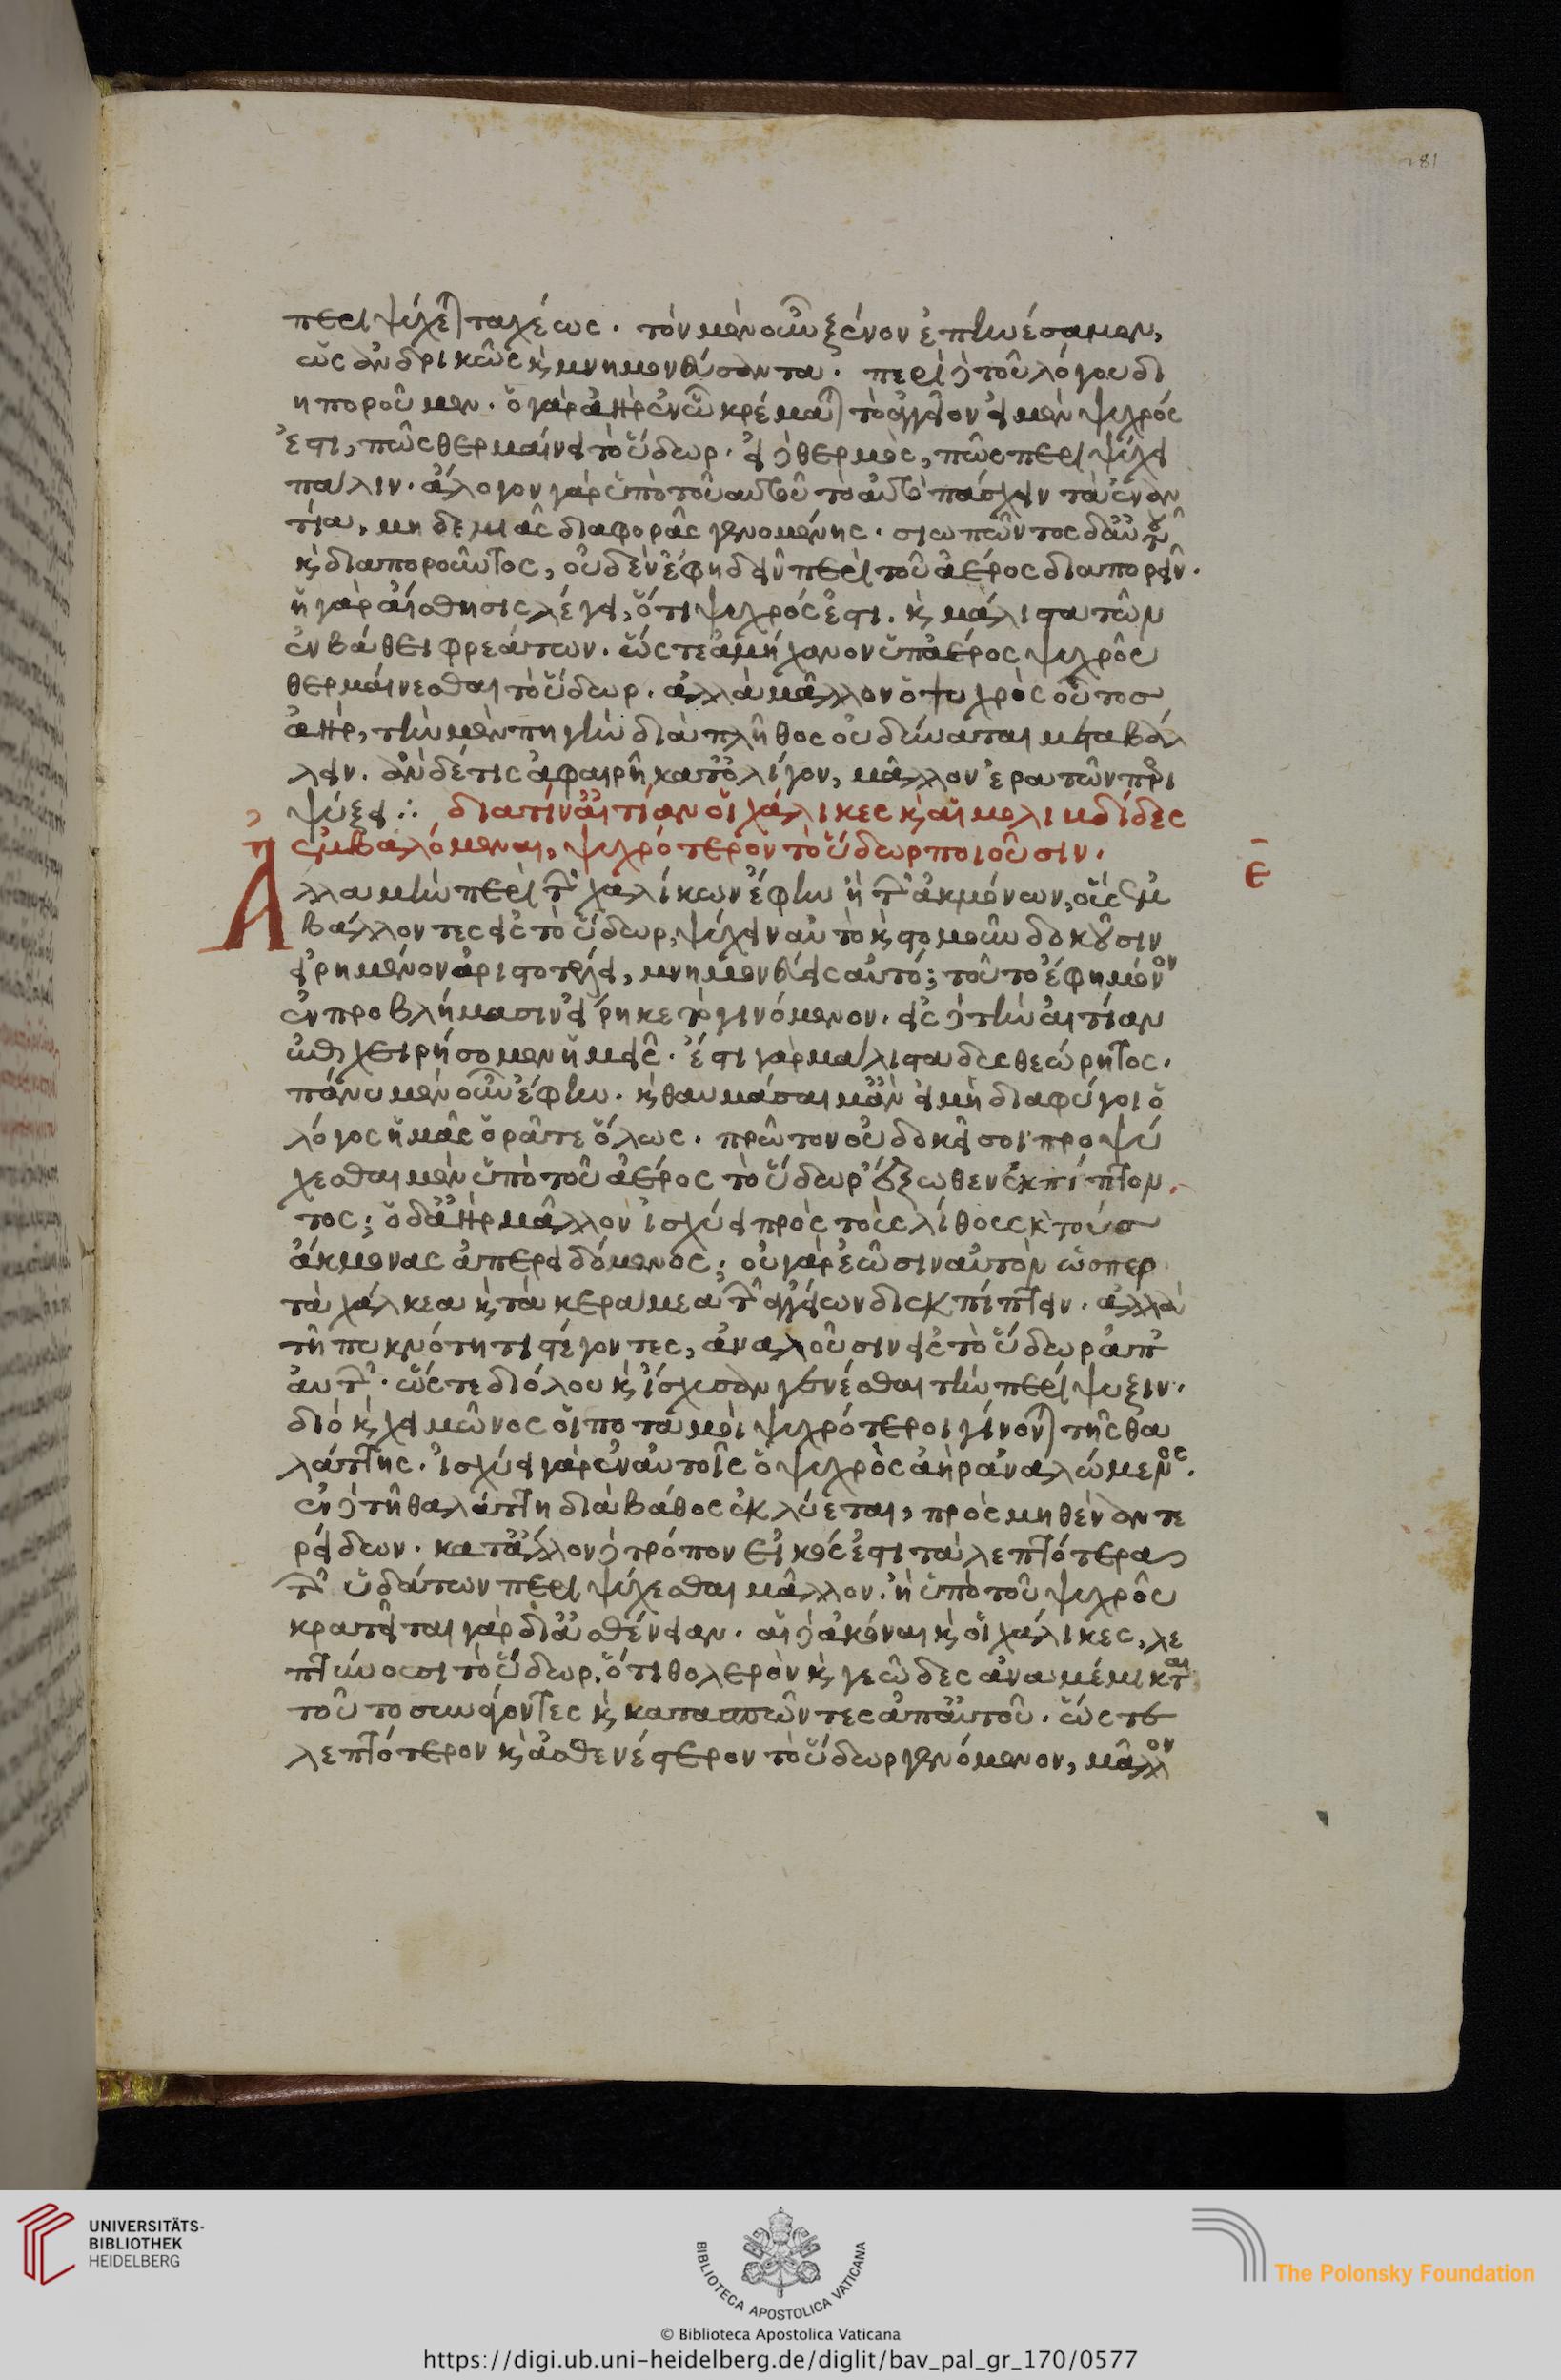 281
περιψύχεται ταχέως. τὸν μὲν οὖν ξένον ἐπῃνέσαμεν,
ὡς ἀνδρικῶς καὶ μνημονεύσαντα. περὶ δὲ τοῦ λόγου δι
ηποροῦμεν. ὁ γὰρ ἀὴρ ἐν ᾧ κρέμαται τὸ ἀγγεῖον εἰ μὲν ψυχρός
ἐστι, πῶς θερμαίνει τὸ ὕδωρ. εἰ δὲ θερμὸς, πῶς περιψύχει
πάλιν. ἄλογον γὰρ ὑπὸ τοῦ αὐτοῦ τὸ αὐτὸ πάσχειν τὰ ἐναν
τία, μηδεμιᾶς διαφορᾶς γενομένης. σιωπῶντος δ' αὐτοῦ
καὶ διαποροῦντος, οὐδὲν ἔφη δεῖν περὶ τοῦ ἀέρος διαπορεῖν.
ἡ γὰρ αἴσθησις λέγει, ὅτι ψυχρός ἐστι. καὶ μάλιστα τῶν
ἐν βάθει φρεάτων. ὥς τε ἀμήχανον ὑπ' ἀέρος ψυχροῦ
θερμαίνεσθαι τὸ ὕδωρ. ἀλλὰ μᾶλλον ὁ ψυχρὸς οὗτος
ἀὴρ, τὴν μὲν πηγὴν διὰ πλῆθος οὐ δύναται μεταβάλ
λειν. ἂν δέ τις ἀφαιρῇ κατ' ὀλίγον, μᾶλλον ἐρατῶν περι
ψύξει ∴ διὰ τίν' αἰτίαν οἱ χάλικες καὶ αἱ μολιβδίδες
ἐμβαλόμεναι, ψυχρότερον τὸ ὕδωρ ποιοῦσιν.
ε
Ἀλλὰ μὴν περὶ τῶν χαλίκων ἔφην ἢ τῶν ἀκμόνων, οὓς ἐμ
βάλλοντες εἰς τὸ ὕδωρ, ψύχειν αὐτὸ καὶ στομοῦν δοκοῦσιν
εἰρημένον ἀριστοτέλει, μνημονεύεις αὐτό; τοῦτο ἔφη μόνον
ἐν προβλήμασιν εἴρηκε τὸ γινόμενον. εἰς δὲ τὴν αἰτίαν
ἐπιχειρήσομεν ἡμεῖς. ἔστι γὰρ μάλιστα δυσθεώρητος.
πάνυ μὲν οὖν ἔφην. καὶ θαυμάσαιμ' ἂν εἰ μὴ διαφύγοι ὁ
λόγος ἡμᾶς ὁρᾶτε ὅλως. πρῶτον οὐ δοκεῖ σοι προψύ
χεσθαι μὲν ὑπὸ τοῦ ἀέρος τὸ ὕδωρ ἔξωθεν ἐκπίπτον
τος; ὁ δ' ἀὴρ μᾶλλον ἰσχύει πρὸς τοὺς λίθους καὶ τοὺς
ἄκμονας ἀπερειδόμενος; οὐ γὰρ ἐῶσιν αὐτὸν ὥσπερ
τὰ χάλκεα καὶ τὰ κεράμεα τῶν ἀγγείων διεκπίπτειν. ἀλλὰ
τῇ πυκνότητι στέγοντες, ἀναλοῦσιν εἰς τὸ ὕδωρ ἀπ'
αὐτῶν. ὥς τε δι' ὅλου καὶ ἰσχυσὰν γενέσθαι τὴν περίψυξιν.
διὸ καὶ χειμῶνος οἱ ποταμοὶ ψυχρότεροι γίνονται τῆς θα
λάττης. ἰσχύει γὰρ ἐν αὐτοῖς ὁ ψυχρὸς ἀὴρ ἀναλώμενος.
ἐν δὲ τῇ θαλάττῃ διὰ βάθος ἐκλύεται, πρὸς μηθὲν ἀντε
ρείδων. κατ' ἄλλον δὲ τρόπον εἰκός ἐστι τὰ λεπτότερα
τῶν ὑδάτων περιψύχεσθαι μᾶλλον. ἢ ὑπὸ τοῦ ψυχροῦ
κρατεῖται γὰρ δι' ἀσθένειαν. αἱ δὲ ἀκόναι καὶ οἱ χάλικες, λε
πτύνουσι τὸ ὕδωρ, ὅτι θολερὸν καὶ γεῶδες ἀναμέμικται
τοῦτο συνάγοντες καὶ κατασπῶντες ἀπ' αὐτοῦ. ὥς τε
λεπτότερον καὶ ἀσθενέστερον τὸ ὕδωρ γενόμενον, μᾶλλον
UNIVERSITÄTS-
BIBLIOTHEK
HEIDELBERG
BIBLIOTECA APOSTOLICA VATICANA
The Polonsky Foundation
© Biblioteca Apostolica Vaticana
https://digi.ub.uni-heidelberg.de/diglit/bav_pal_gr_170/0577